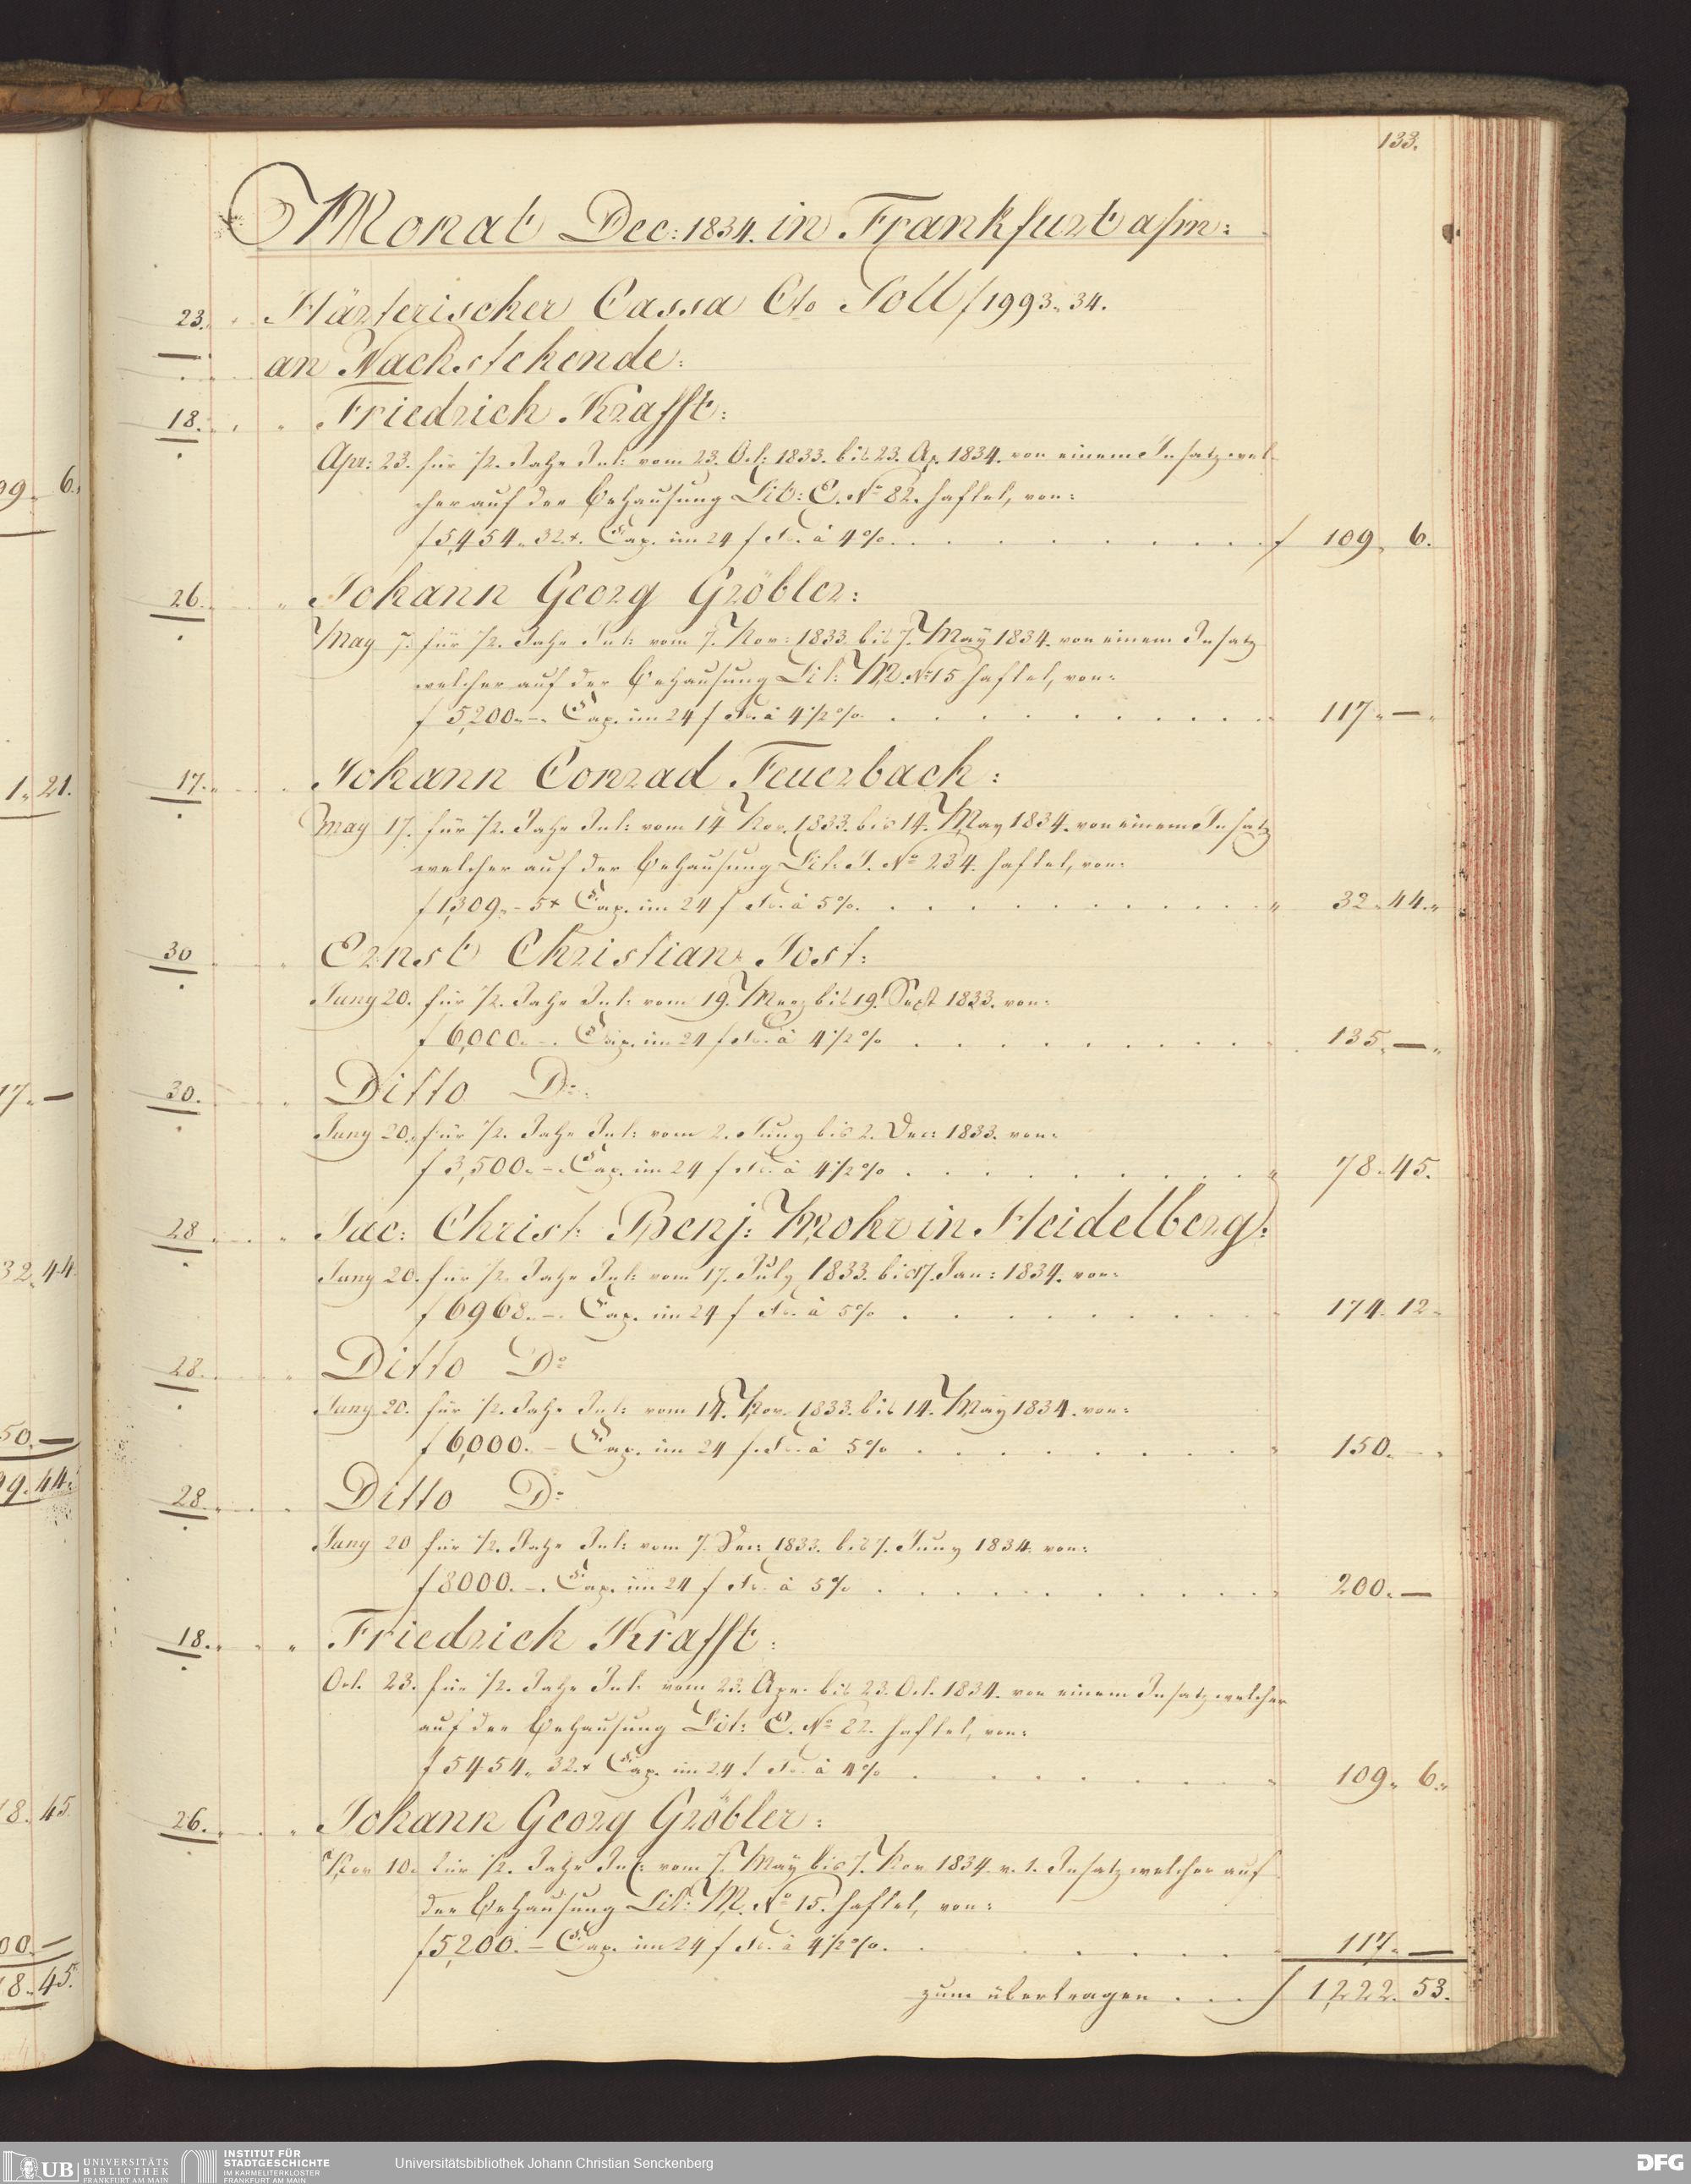 133.
Monat Dec: 1834. in Frankfurt a/m:
23. Härterischer Cassa Cto Soll f 1993. 34.
an Nachstehende:
18. " Friedrich Krafft:
Apr: 23. für 1/2. Jahr Int: vom 23. Oct: 1833. bis 23. Ap. 1834. von einem Insatz wel-
cher auf der Behausung Lit: E. No 82. haftet, von:
f 5,454. 32.x. Cap. im 24 f Fs. à 4% . . . f 109. 6.
26. " Johann Georg Gröbler:
May 7. für 1/2. Jahr Int: vom 7. Nov: 1833. bis 7. May 1834. von einem Insatz
welcher auf der Behausung Lit: M. No 15 haftet, von:
f 5,200. – . Cap. im 24 f Fs. à 4 1/2 %. . . . 117. — .
17. " Johann Conrad Feuerbach:
May 17. für 1/2. Jahr Int: vom 14 Nov. 1833. bis 14. May 1834. von einem Insatz
welcher auf der Behausung Lit: J. No 234. haftet, von:
f 1,309. – 5x Cap. im 24 f Fs. à 5%. . . . " 32. 44. "
30 " Ernst Christian Jost:
Juny 20. für 1/2. Jahr Int: vom 19. Merz bis 19. Sept 1833. von:
f 6,000. – . Cap. im 24 f Fs. à 4 1/2 % . . . 135. — "
30. " Ditto Do:
Juny 20. für 1/2. Jahr Int: vom 2. Juny bis 2. Dec: 1833. von:
f 3,500. – . Cap. im 24 f Fs. à 4 1/2 % . . . " 78. 45.
28 " Jac: Christ: Benj: Mohr in Heidelberg:
Juny 20. für 1/2. Jahr Int: vom 17. July 1833. bis 17. Jan: 1834. von:
f 6968. – . Cap. im 24 f Fs. à 5% . . . 174. 12.
28. " Ditto Do
Juny 20. für 1/2. Jahr Int: vom 14. Nov. 1833. bis 14. May 1834. von:
f 6,000. – Cap. im 24 f. Fs. à 5% . . . " 150. — .
28. " Ditto Do:
Juny 20 für 1/2. Jahr Int: vom 7. Dec: 1833. bis 7. Juny 1834. von:
f 8000. – . Cap. im 24 f Fs. à 5% . . . " 200. —
18. " Friedrich Krafft:
Oct. 23. für 1/2. Jahr Int: vom 23. Apr. bis 23. Oct. 1834. von einem Insatz welcher
auf der Behausung Lit: E. No 82. haftet, von:
f 5454. 32.x Cap. im 24 f Fs. à 4% . . . " 109. 6. "
26. " Johann Georg Gröbler:
Nov 10. für 1/2. Jahr Int: vom 7. May bis 7. Nov 1834 v. 1. Insatz welcher auf
der Behausung Lit: M. No 15. haftet, von:
f 5,200. – Cap. im 24 f Fs. à 4 1/2 %. . . . 117. —
zum übertragen . . . f 1,222. 53.
99. 6.
1. 21.
17. —
32. 44.
50. —
99. 44.
18. 45.
00. —
18. 45.
UB UNIVERSITÄTS BIBLIOTHEK FRANKFURT AM MAIN
INSTITUT FÜR STADTGESCHICHTE IM KARMELITERKLOSTER FRANKFURT AM MAIN
Universitätsbibliothek Johann Christian Senckenberg
DFG